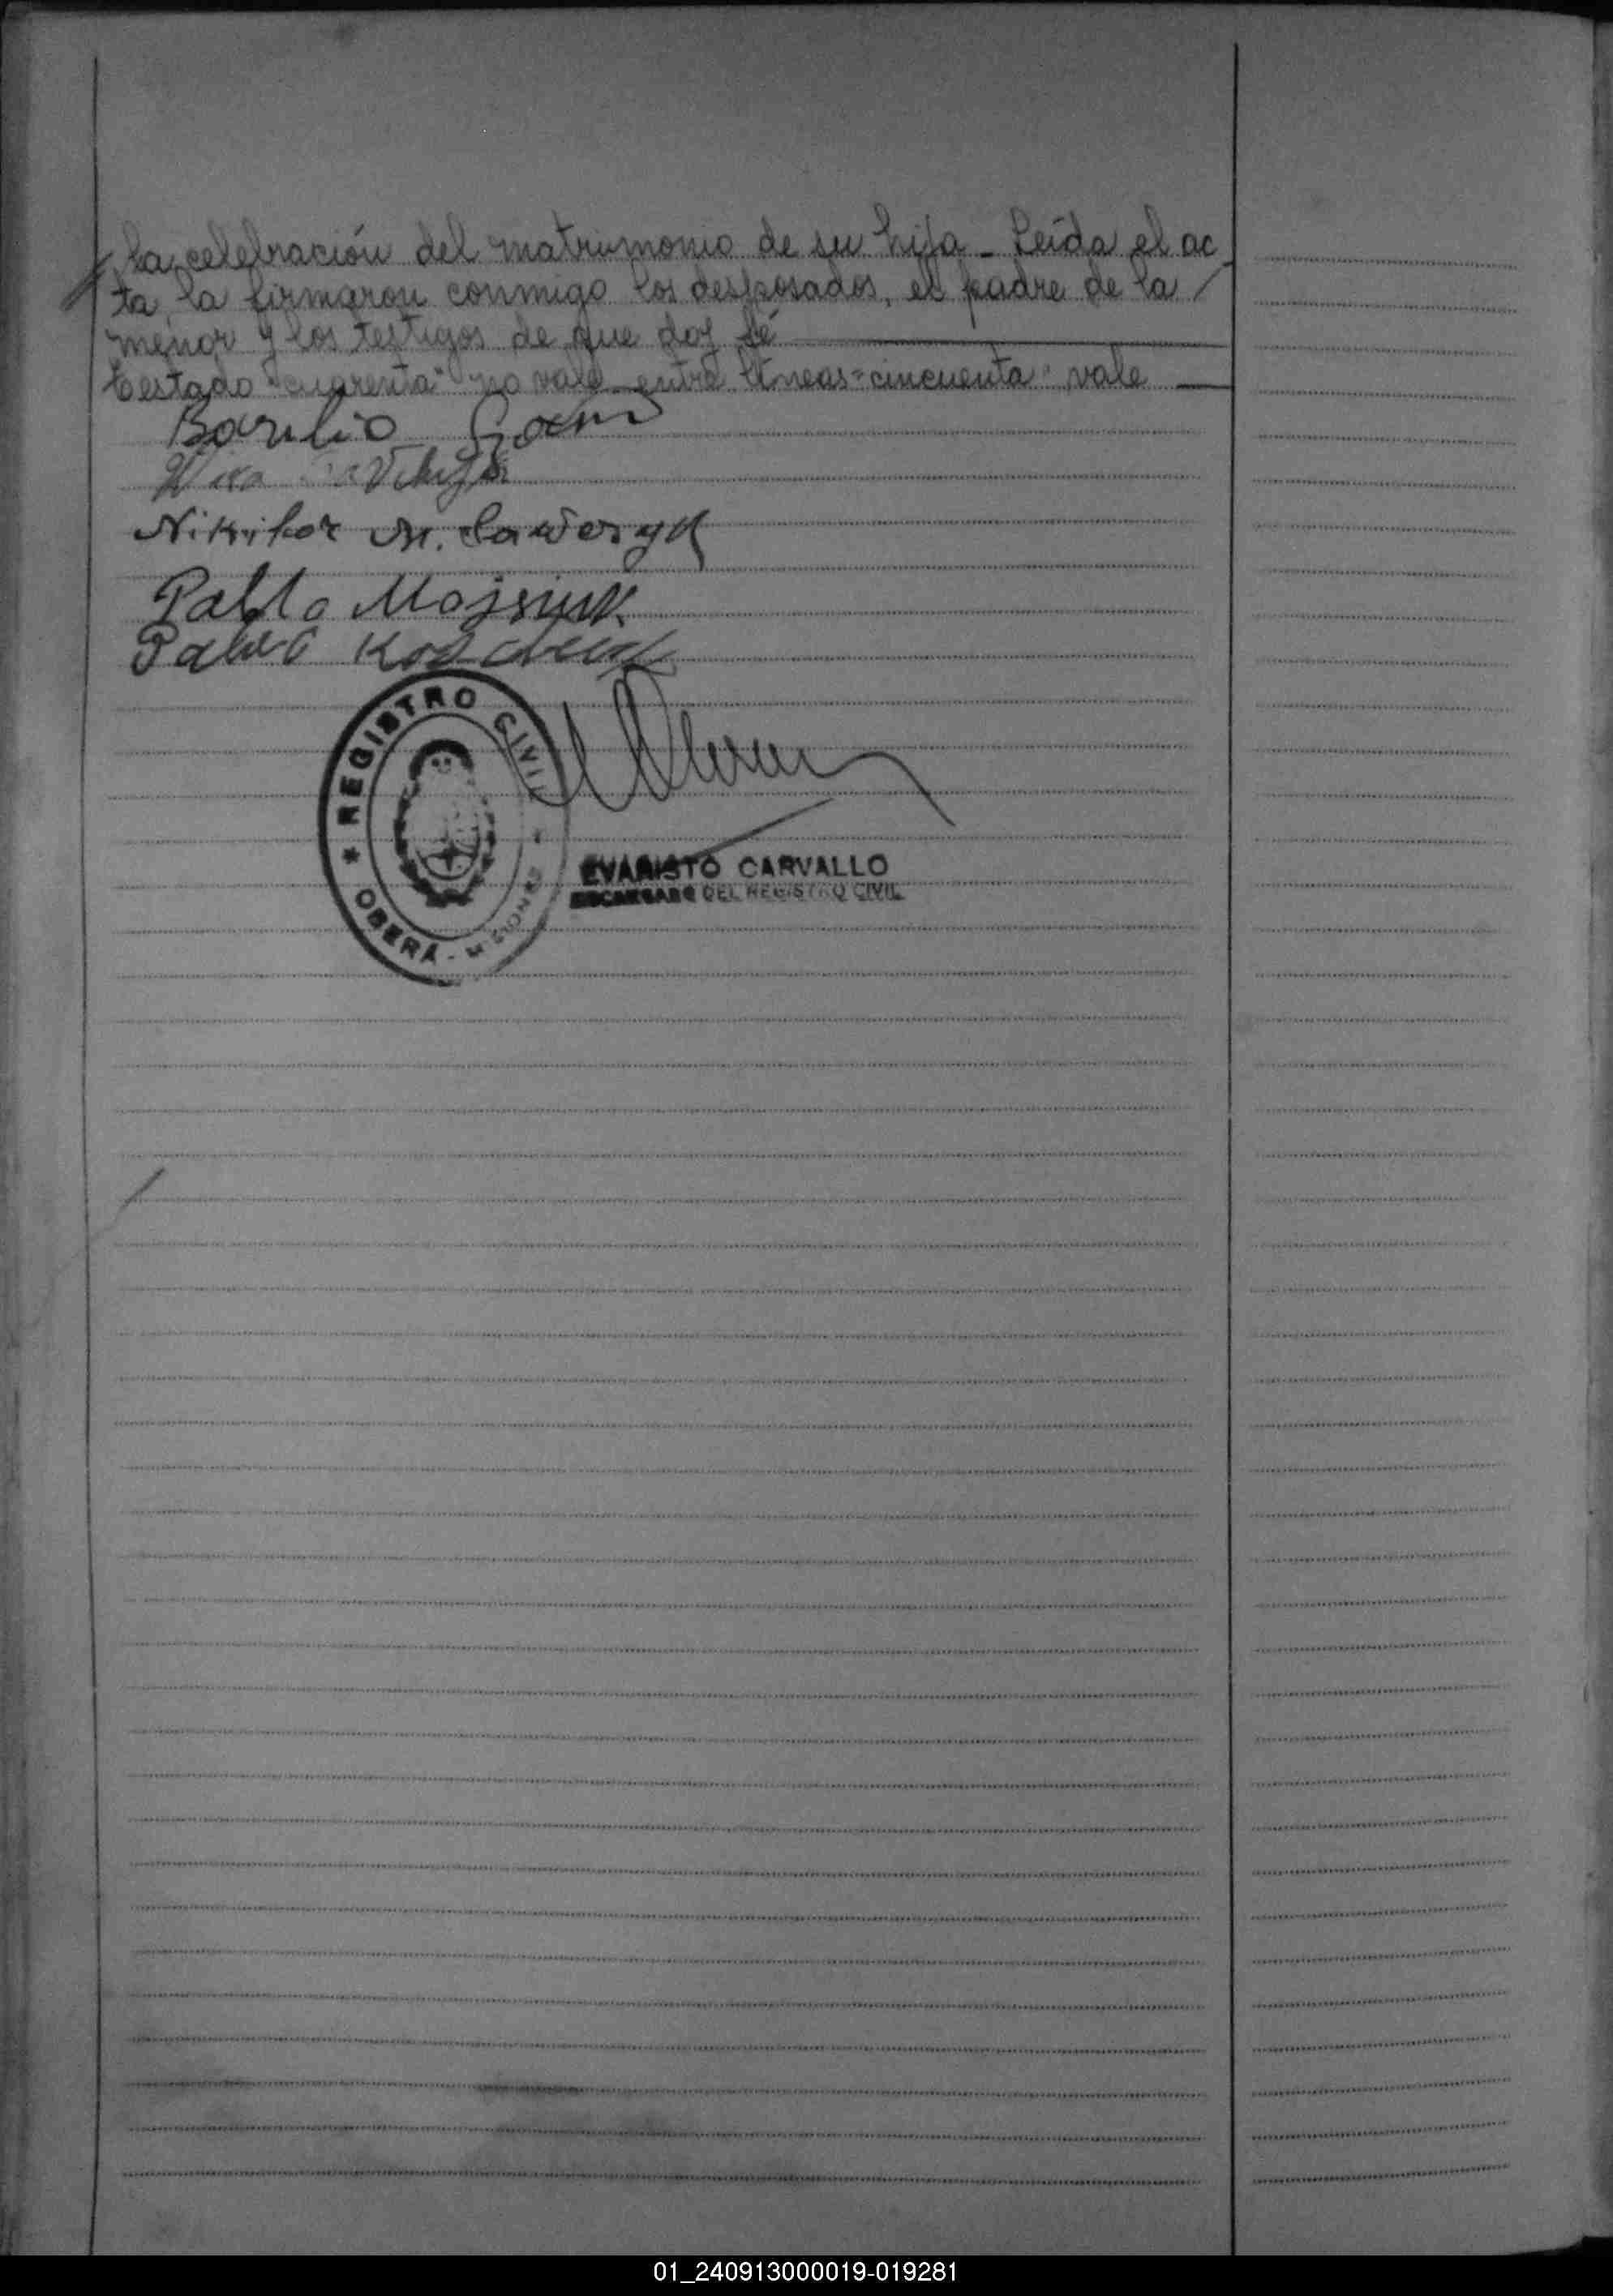 la celebración del matrimonio de su hija - Leída el ac
ta, la firmaron conmigo los desposados, el padre de la /
menor y los testigos de que doy fé
Testado "cuarenta" no vale - entre líneas - cincuenta - vale
Basilio
Nikifor M. Saweryn
Pablo
Pablo
REGISTRO CIVIL
OBERÁ - MISIONES -
EVARISTO CARVALLO
ENCARGADO DEL REGISTRO CIVIL
01_240913000019-019281